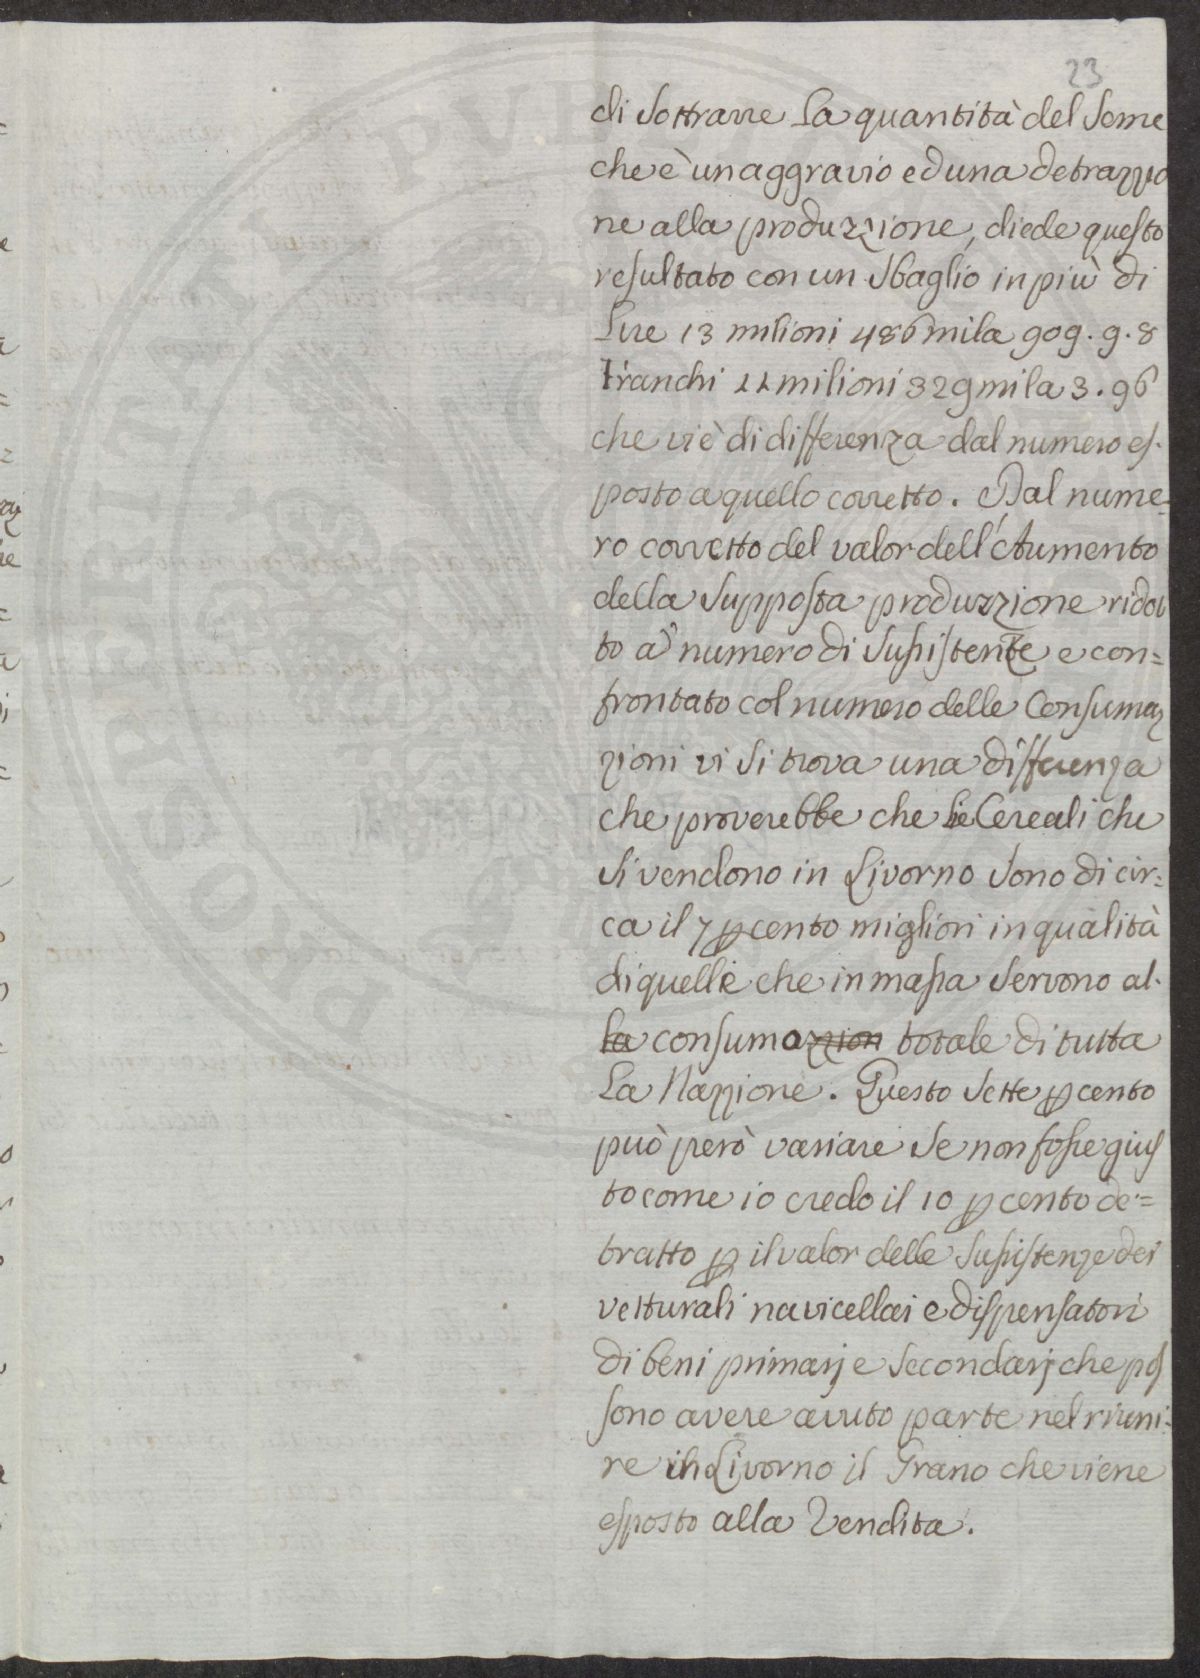 23
di Sottrarre La quantità del Seme
che è un aggravio ed una detrazzio
ne alla produzzione, diede questo
resultato con un Sbaglio in più di
Lire 13 milioni 486 mila 909. 9. 8
Franchi 11 milioni 329 mila 3. 96
che vi è di differenza dal numero es-
posto a quello corretto. Dal nume-
ro corretto del valor dell'Aumento
della Supposta produzzione ridot
to a numero di Susistenze e con=
frontato col numero delle Consumaz
zioni vi Si trova una differenza
che proverebbe che le Cereali che
Si vendono in Livorno Sono di cir=
ca il 7 p cento migliori in qualità
di quelle che in massa Servono al-
la consumazzion totale di tutta
La Nazzione. Questo Sette p cento
può però variare Se non fosse gius
to come io credo il 10 p cento de=
tratto p il valor delle Susistenze dei
vetturali navicellai e dispensatori
di beni primarj e Secondarj che pos
sono avere avuto parte nel riuni=
re in Livorno il Grano che viene
esposto alla Vendita.